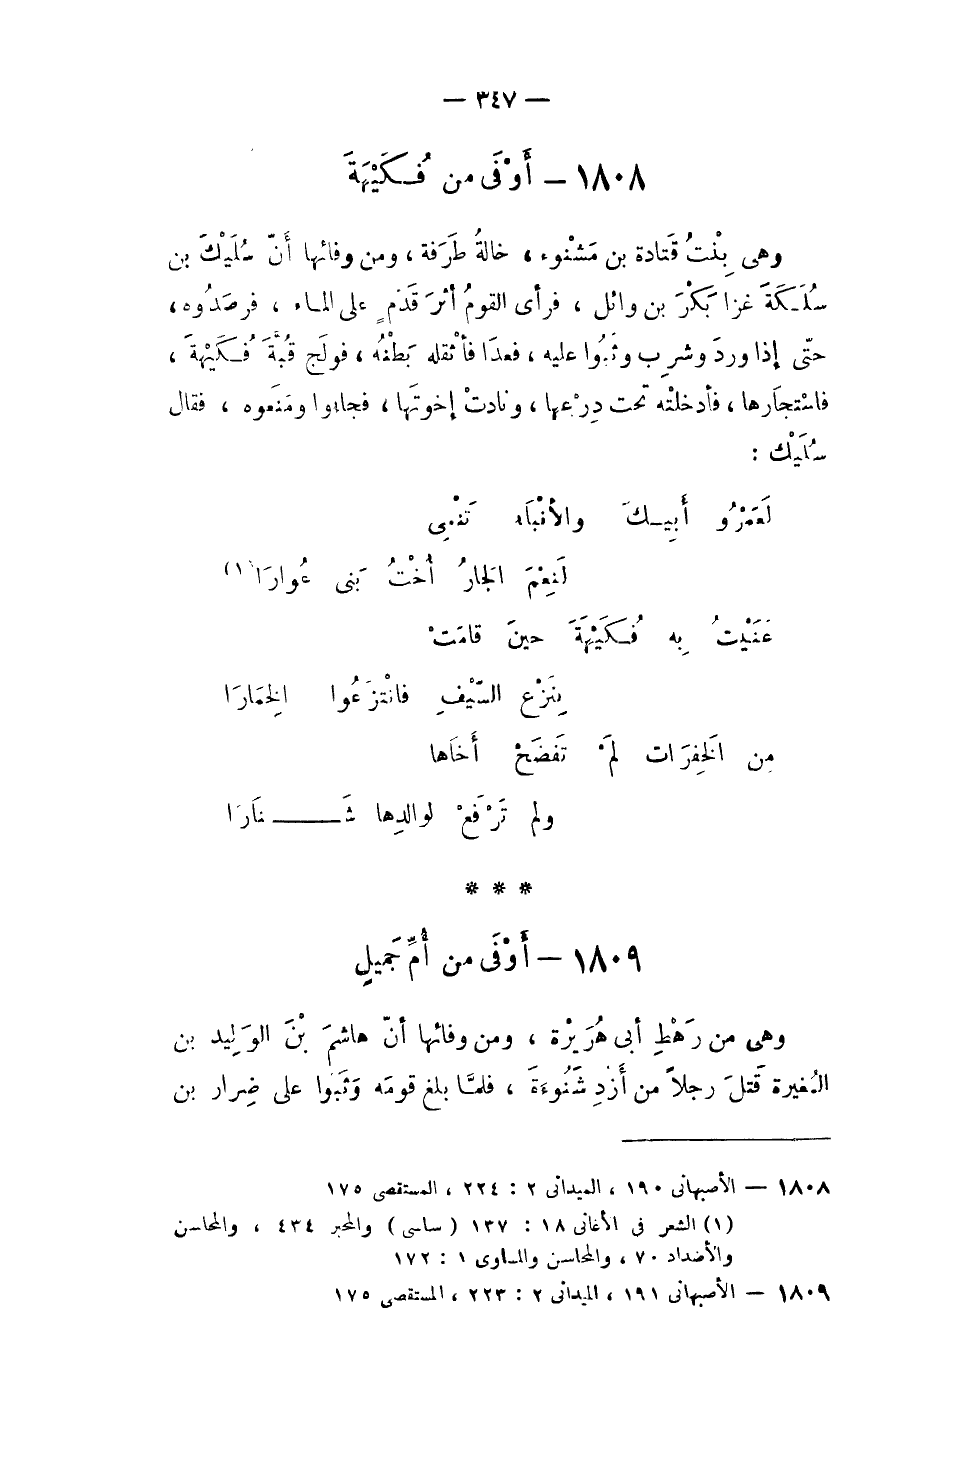 — ٣٤٧ —
١٨٠٨ — أَوْفَى من فُـكَيْهَةَ
وهى بِنْتُ قَتادة بن مَشْنوء ، خالةُ طَرَفة ، ومن وفائها أَنّ سُلَيْكَ بن
سُلَـكَةَ غزا بَكْرَ بن وائل ، فرأى القومُ أثرَ قَدَمٍ على المـاء ، فرصَدُوه ،
حتّى إذا وردَ وشرِب وثَبُوا عليه ، فعدَا فأثْقله بَطْنُه ، فولَج قُبَّةَ فُـكَيْهةَ ،
فاسْتجارها ، فأدخلتْه تحت دِرْعِها ، ونادتْ إخوتَها ، فجاءوا ومَنَعوه ، فقال
سُلَيْك :
لَعَمْرُو أَبِيـكَ والأنْبَاء تَنْمِى
لَنِعْمَ الجَارُ أُخْتُ بَنِى عُوارَا (١)
عَنَيْتُ بِه فُـكَيْهَةَ حينَ قامَتْ
بِنَزْعِ السَّيْفِ فانْتزَعُوا الخِمَارَا
مِن الخَفِرَات لَمْ تَفضَحْ أَخَاها
ولم تَرْفَعْ لوالدِها شَـــــنَارَا
* * *
١٨٠٩ — أَوْفَى من أُمِّ جَميلٍ
وهى من رَهْطِ أبى هُرَيْرة ، ومن وفائها أنّ هاشمَ بْنَ الوَلِيد بن
المُغيرة قَتلَ رجلاً من أَزْدِ شَنُوءَةَ ، فلمَّـا بلغ قومَه وَثَبُوا على ضِرار بن
١٨٠٨ — الأصبهانى ١٩٠ ، الميدانى ٢ : ٢٢٤ ، المستقصى ١٧٥
(١) الشعر فى الأغانى ١٨ : ١٣٧ ( ساسى ) والمحبر ٤٣٤ ، والمحاسن
والأضداد ٧٠ ، والمحاسن والمساوى ١ : ١٧٢
١٨٠٩ — الأصبهانى ١٩١ ، الميدانى ٢ : ٢٢٣ ، المستقصى ١٧٥